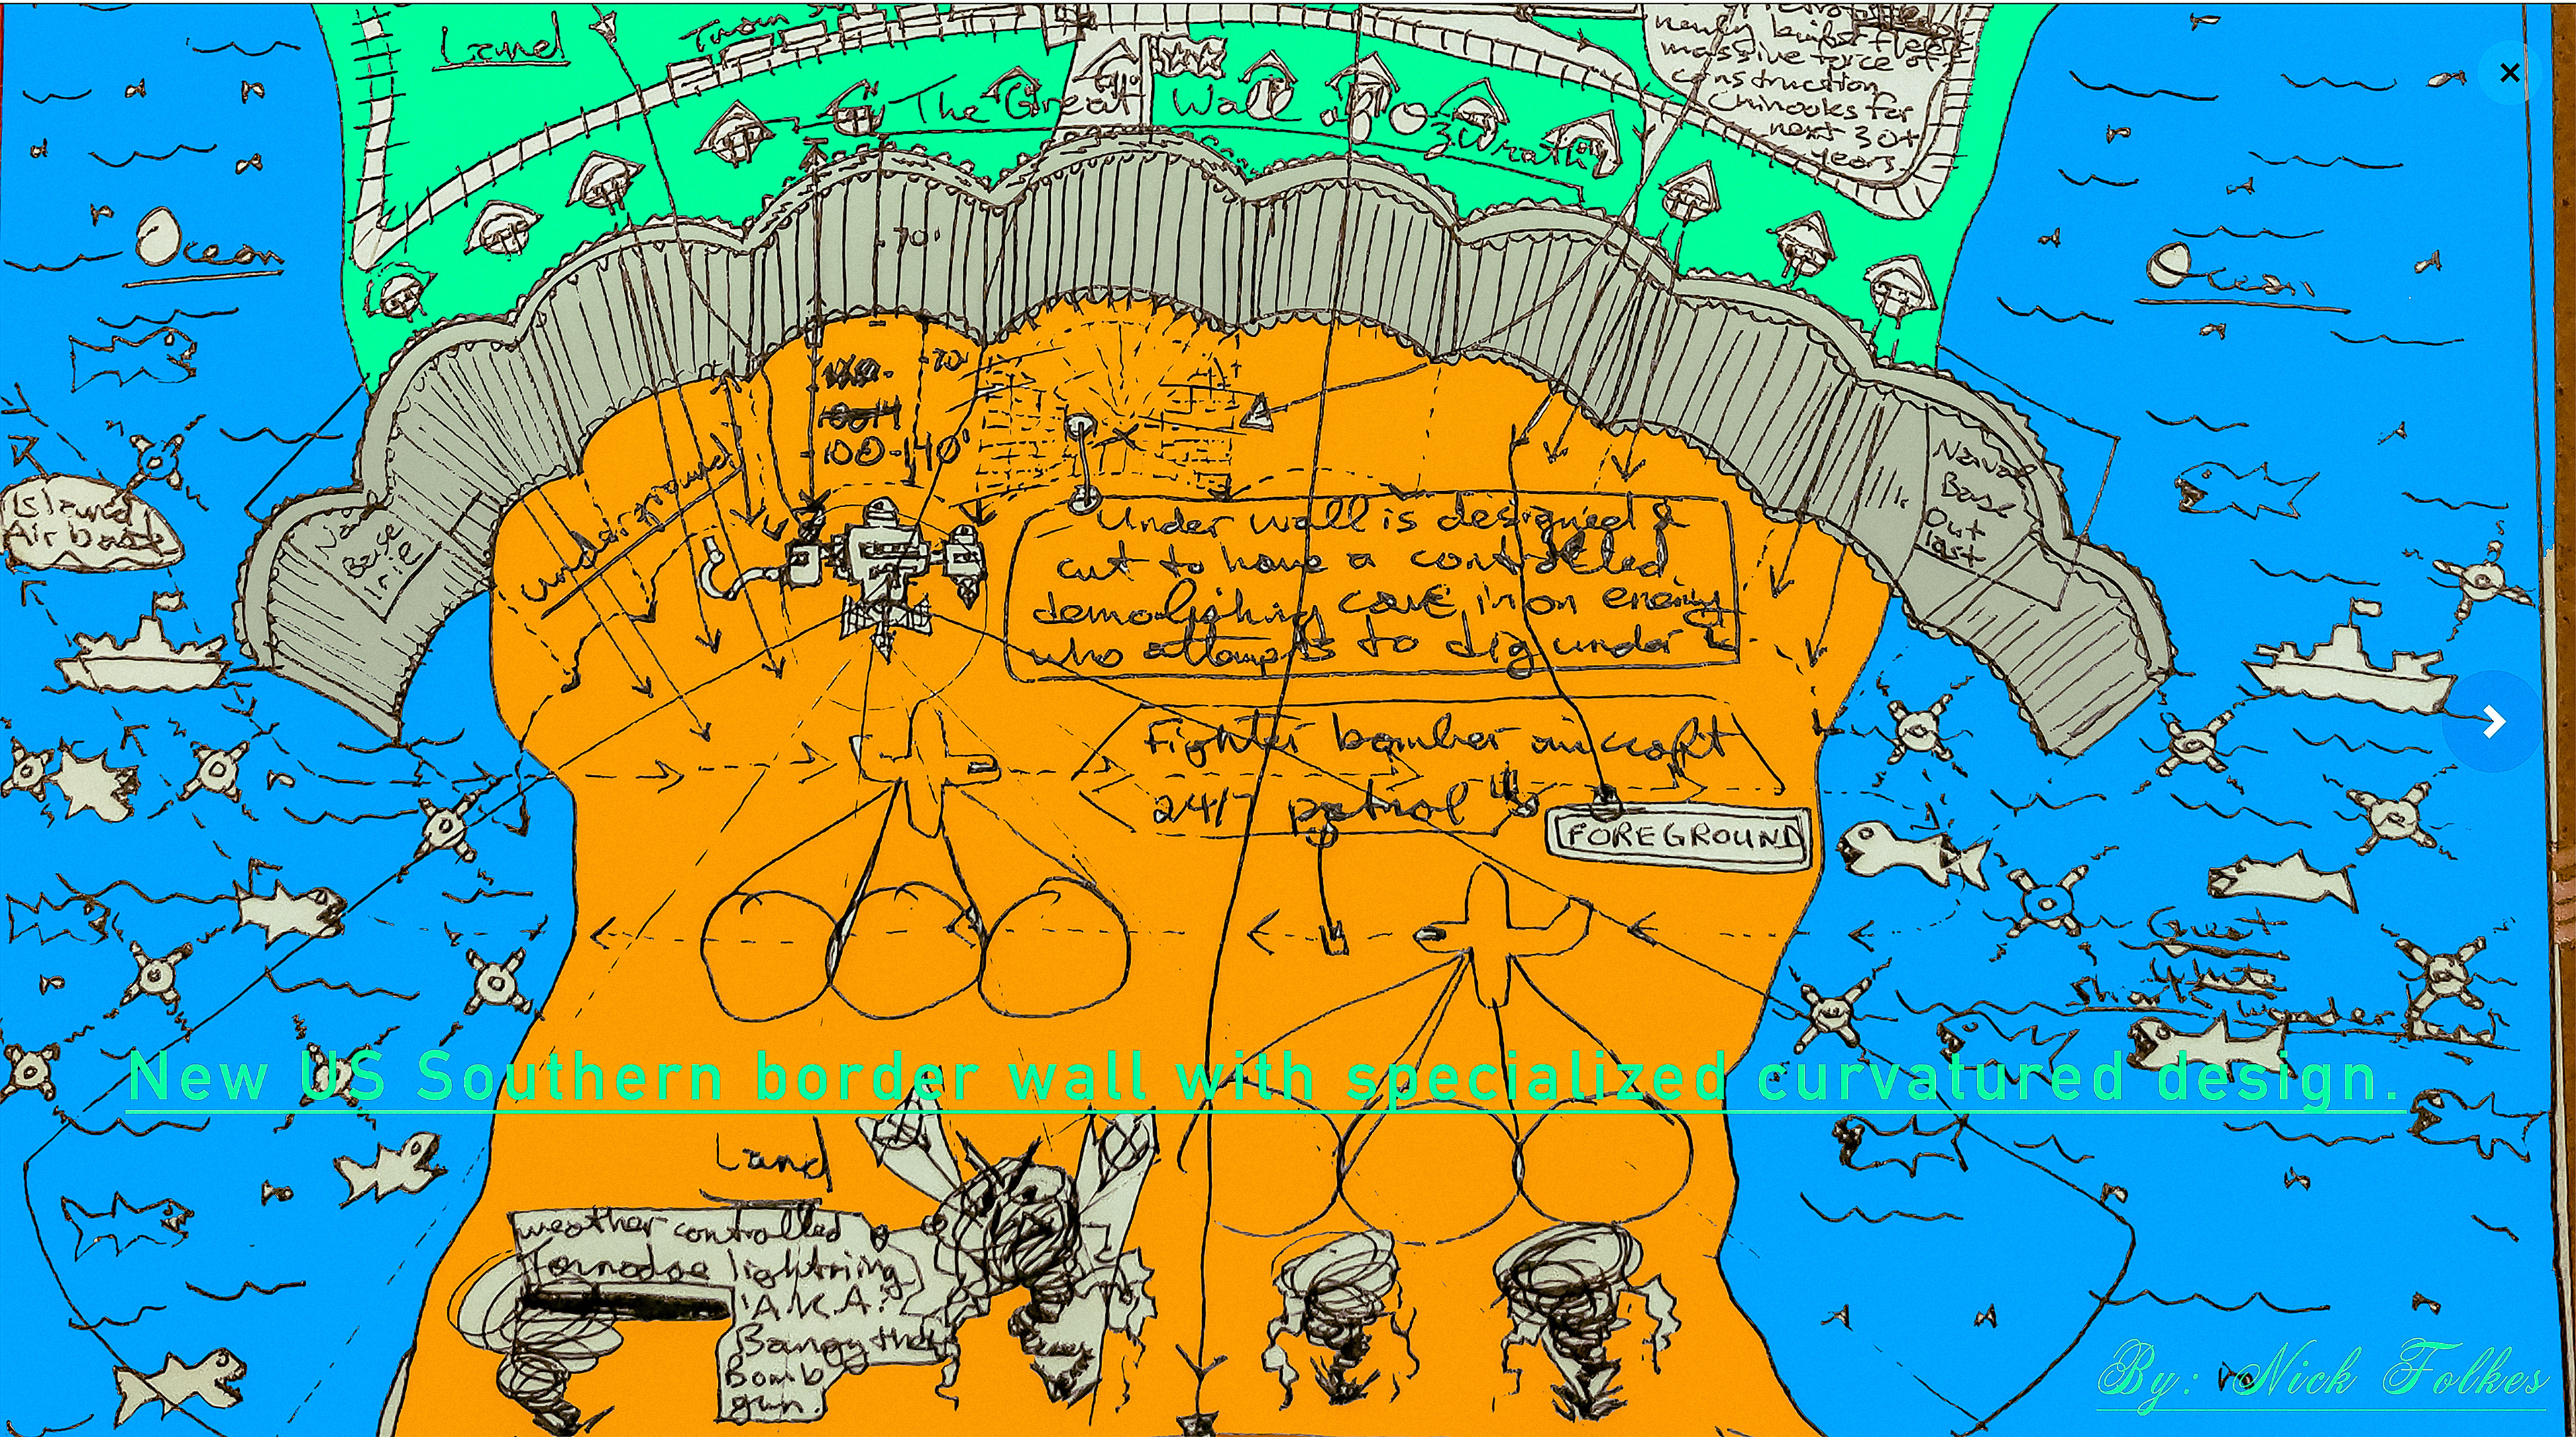 Land
Train
newly built fleet
massive force of
construction
Chinooks for
next 30+
years
The Great Wall of Wrath
70'
Ocean
Ocean
-70'
100-140'
underground
Naval
Base
Out
last
Base
Island
Air base
Under wall is designed &
cut to have a controlled
demolishing cave in on enemy
who attempts to dig under it
Fighter bomber aircraft
24/7 patrol
FOREGROUND
Great
White
Shark
wonder land
New US Southern border wall with specialized curvatured design.
Land
weather controlled
Tornadoe lightning
"A.K.A."
Bangy the
Bomb
gun.
By: Nick Folkes